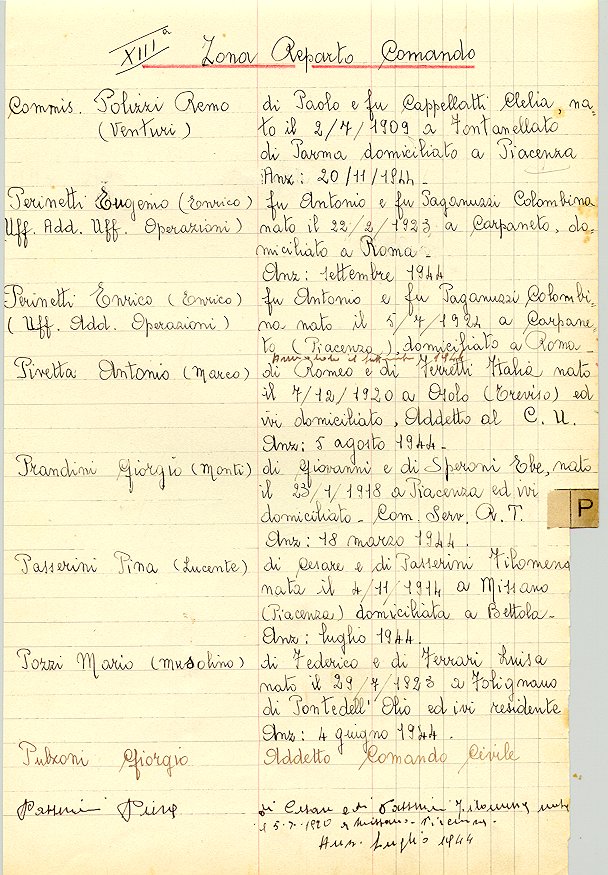 XIIIª Zona Reparto Comando
Commis. Polizzi Remo di Paolo e fu Cappellatti Clelia, na-
(Venturi) to il 2/7/1909 a Fontanellato
di Parma domiciliato a Piacenza
Anz: 20/11/1944 -
Perinetti Eugenio (Enrico) fu Antonio e fu Paganuzzi Colombina
Uff. Add. Uff. Operazioni) nato il 22/2/1923 a Carpaneto, do-
miciliato a Roma -
Anz: settembre 1944
Perinetti Enrico (Enrico) fu Antonio e fu Paganuzzi Colombi-
(Uff. Add. Operazioni) na nato il 5/7/1924 a Carpane-
to (Piacenza) domiciliato a Roma -
1944
Pivetta Antonio (Marco) di Romeo e di Ferretti Italia nato
il 7/12/1920 a Osolo (Treviso) ed
ivi domiciliato, Addetto al C. U.
Anz: 5 agosto 1944 -
Prandini Giorgio (Monti) di Giovanni e di Speroni Ebe, nato
il 23/1/1918 a Piacenza ed ivi
domiciliato - Com. Serv. R. T.
Anz: 18 marzo 1944.
P
Passerini Pina (Lucente) di Cesare e di Passerini Filomena
nata il 4/11/1914 a Missano
(Piacenza) domiciliata a Bettola -
Anz: luglio 1944.
Pozzi Mario (Musolino) di Federico e di Ferrari Luisa
nato il 29/7/1823 a Folignano
di Pontedell' Olio ed ivi residente
Anz: 4 giugno 1944.
Pulzoni Giorgio Addetto Comando Civile
Passerini Pina di Cesare e di Passerini Filomena nata
il 5.7.1920 a Missano - Piacenza -
Anz. Luglio 1944